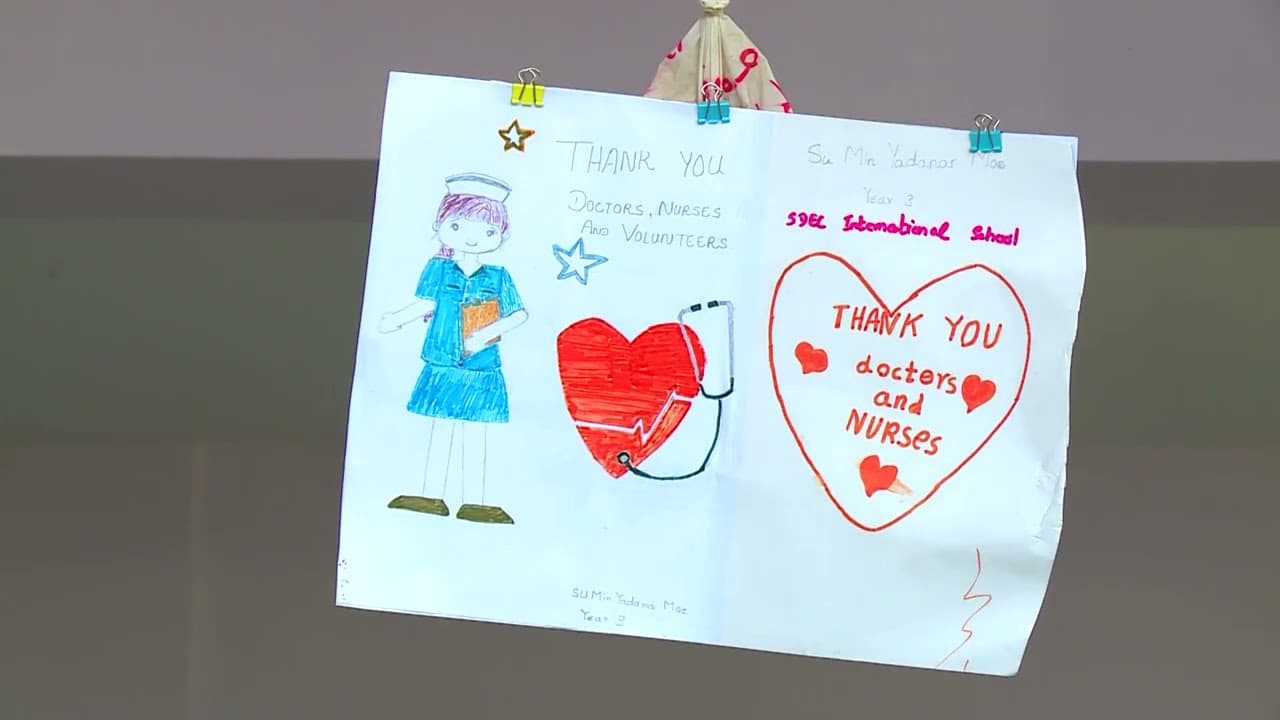 THANK YOU
DOCTORS, NURSES
AND VOLUNTEERS
SU Min Yadana Moe
Year 3
Su Min Yadanar Moe
Year 3
International School
THANK YOU
doctors
and
NURSES